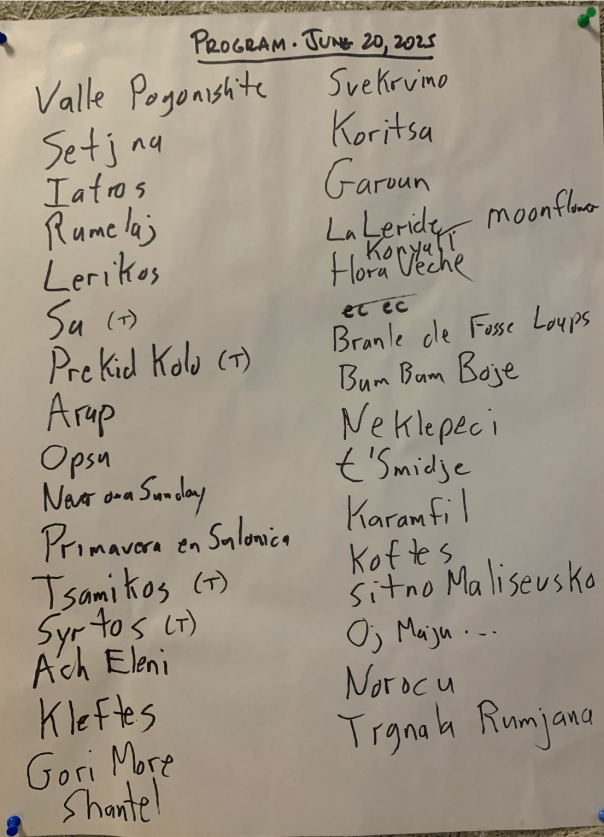 PROGRAM. JUNE 20, 2025
Valle Pogonishte
Setjna
Iatros
Rumelaj
Lerikos
Sa (T)
Prekid Kolo (T)
Arap
Opsa
Never on a Sunday
Primavera en Salonica
Tsamikos (T)
Syrtos (T)
Ach Eleni
Kleftes
Gori More
Shantel
Svekrvino
Koritsa
Garoun
La Leride moonflower
Konyali
Hora Veche
ec ec
Branle de Fosse Loups
Bam Bam Boje
Neklepeci
t'Smidje
Karamfil
Koftes
Sitno Malisevsko
Oj Maju ...
Norocu
Trgnala Rumjana